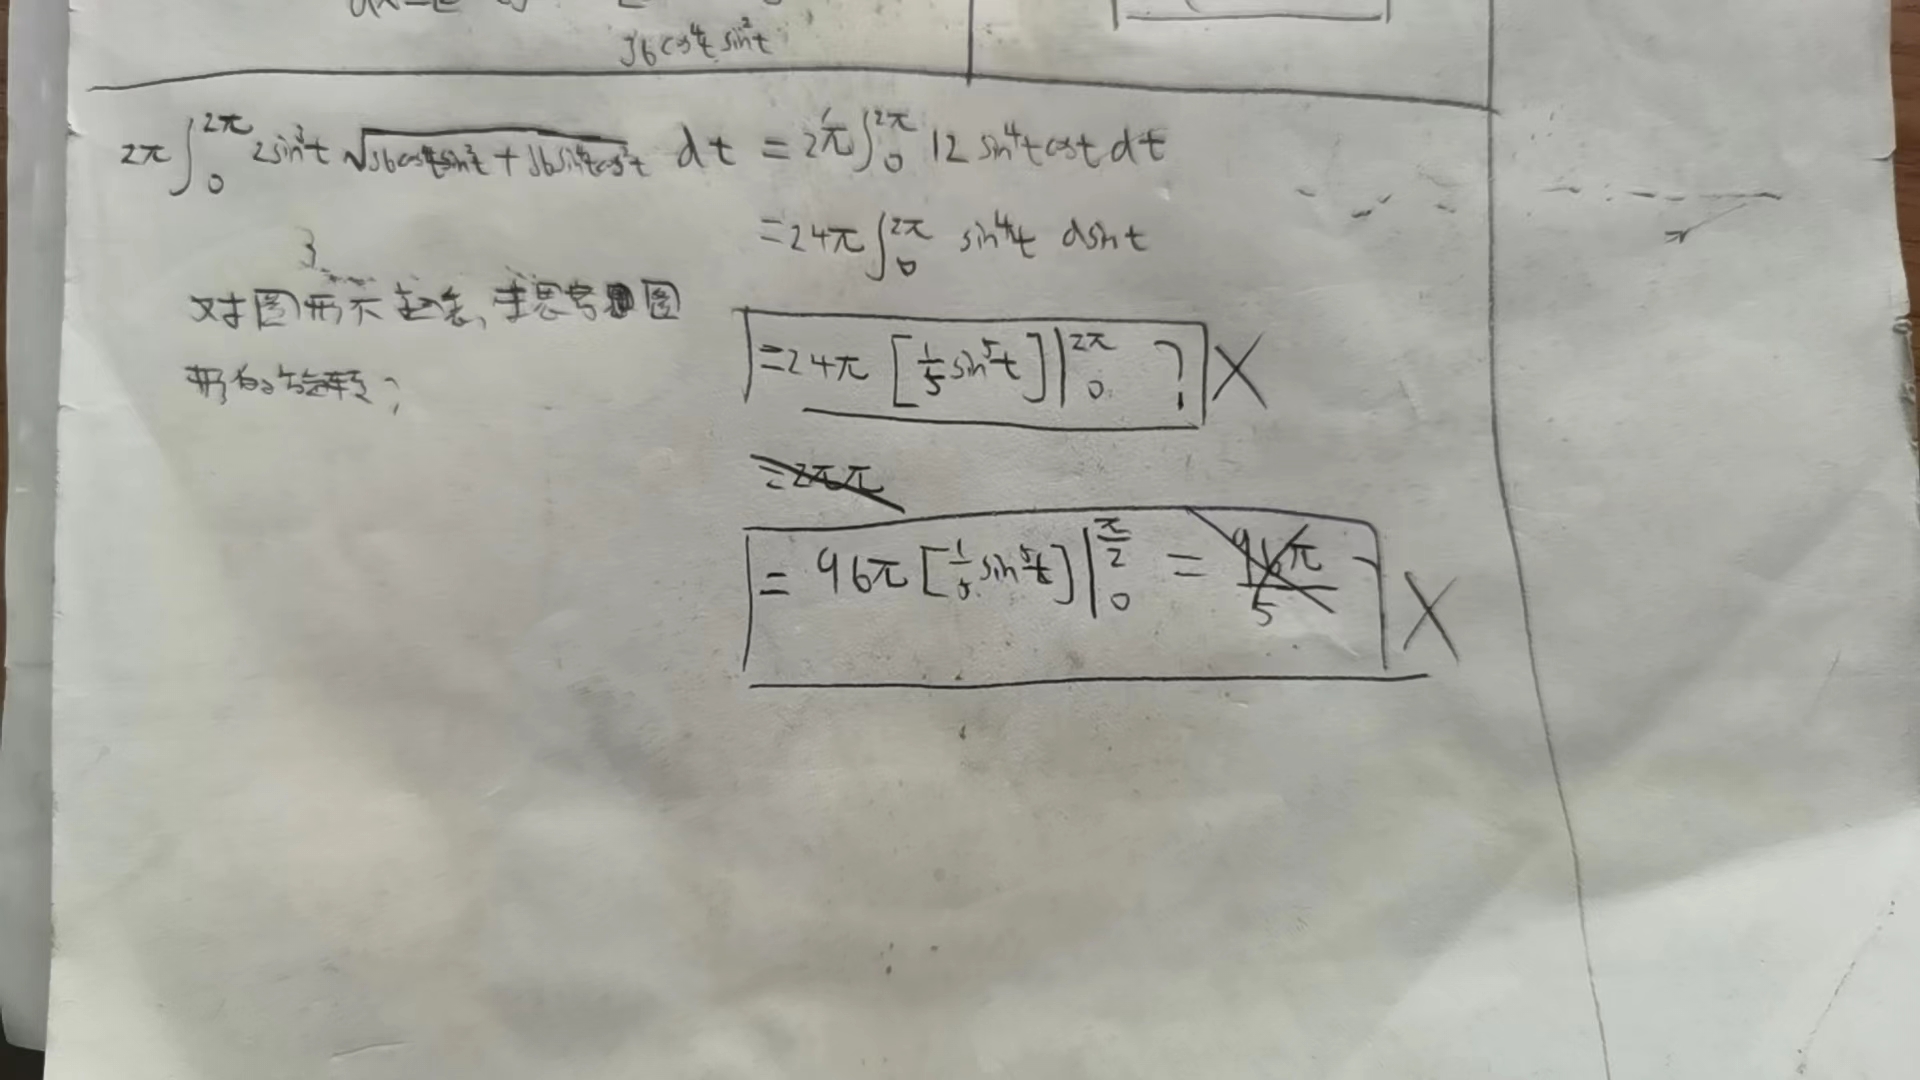 36cos⁴t sin²t
2π∫₀^2π 2sin³t √(36cos⁴tsin²t + 36sin⁴tcos²t) dt = 2π∫₀^2π 12 sin⁴t cost dt
= 24π∫₀^2π sin⁴t dsint
对图形不
= 24π [1/5 sin⁵t]|₀^2π ? X
形的旋转?
= 2π π
= 96π [1/5 sin⁵t]|₀^π/2 = 96π/5 X